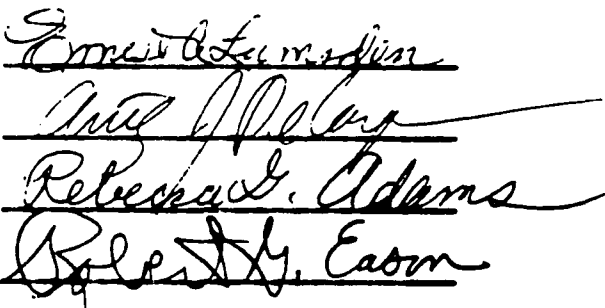 Ernest A Lumsden
J. DeCarp
Rebecca G. Adams
Robert G. Eason